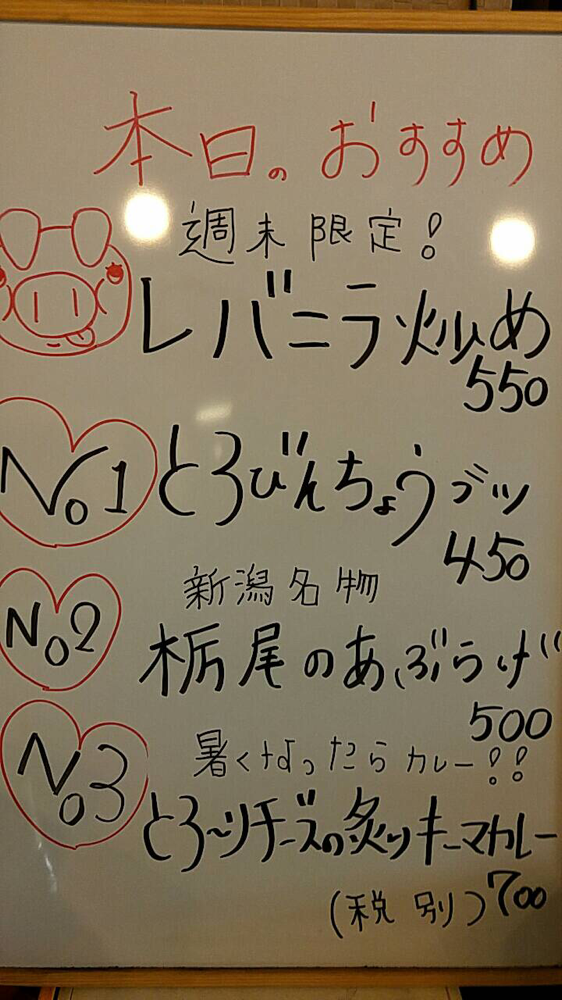 本日のおすすめ
週末限定!
レバニラ炒め
550
No1 とろびんちょうブツ
450
新潟名物
No2 栃尾のあぶらげ
500
暑くなったらカレー!!
No3 とろ〜りチーズの炙りキーマカレー
700
(税別)